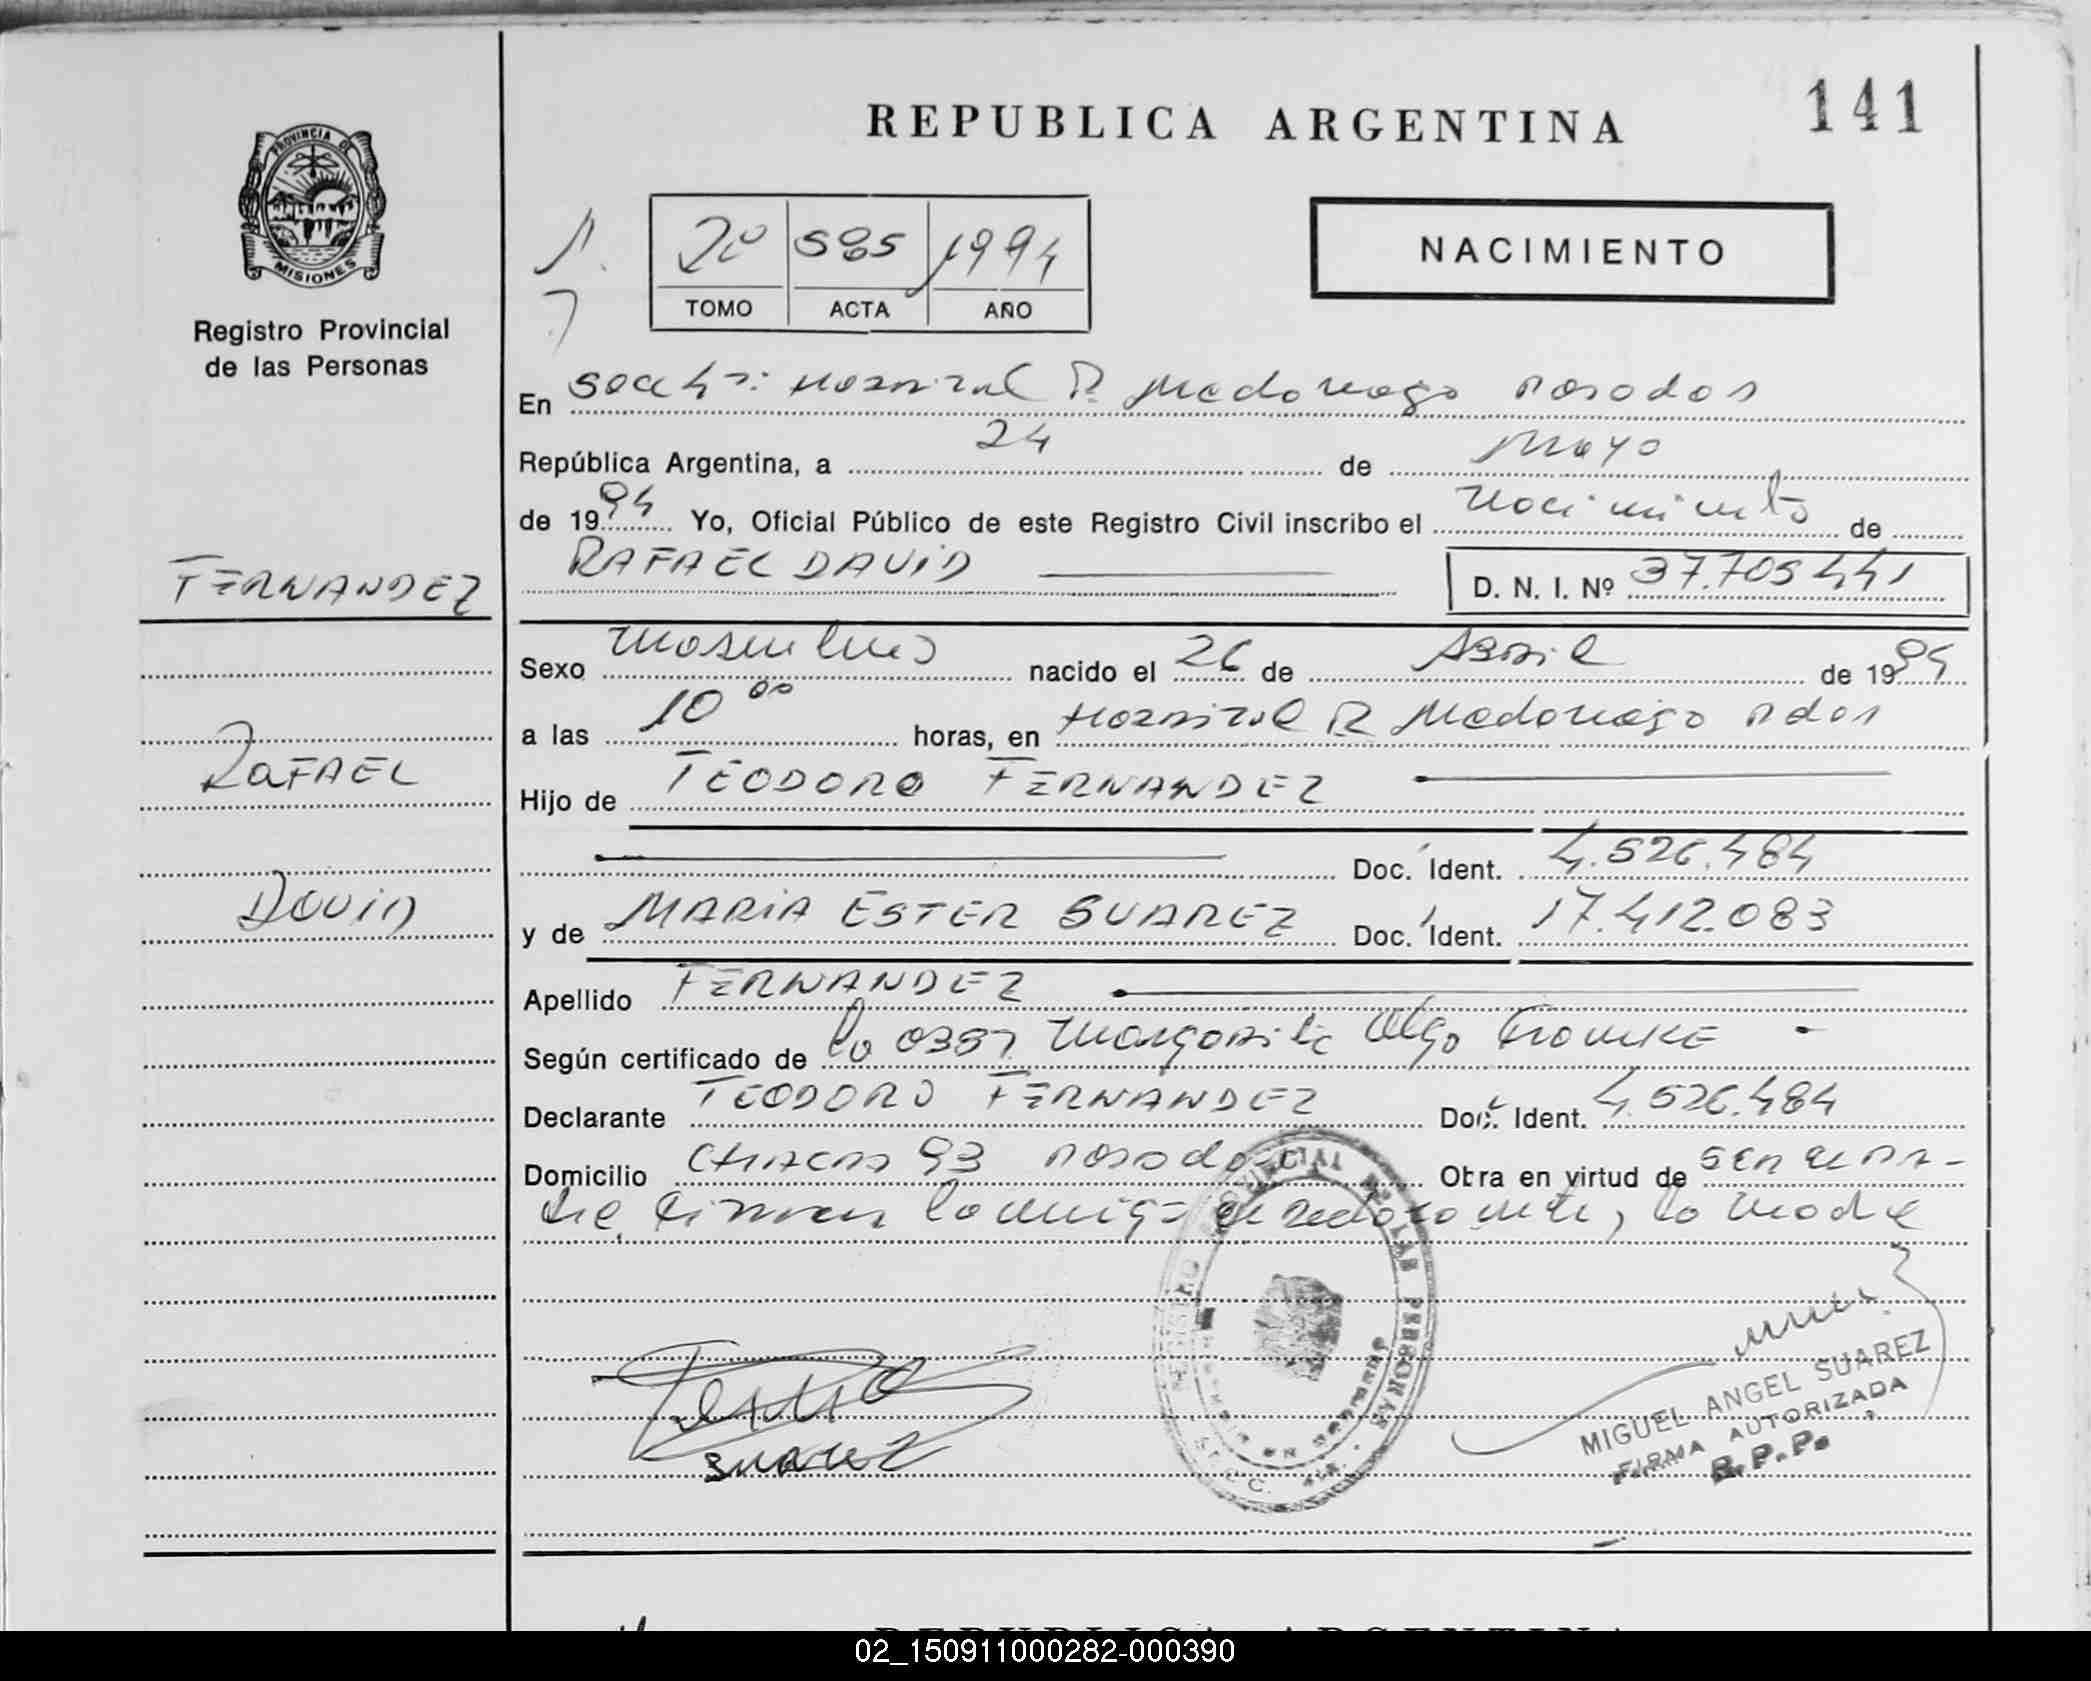 REPUBLICA ARGENTINA
141
PROVINCIA DE
MISIONES
Registro Provincial
de las Personas
2º 585 1994
TOMO ACTA AÑO
NACIMIENTO
En Secc 4ª: Hospital R. Madariaga Posadas
República Argentina, a 24 de Mayo
de 1994 Yo, Oficial Público de este Registro Civil inscribo el Nacimiento de
RAFAEL DAVID D. N. I. Nº 37.705.441
FERNANDEZ
RAFAEL
DAVID
Sexo Masculino nacido el 26 de Abril de 1994
a las 10 00 horas, en Hospital R Madariaga Pdas
Hijo de TEODORO FERNANDEZ
Doc. Ident. 4.526.484
y de MARIA ESTER SUAREZ Doc. Ident. 17.412.083
Apellido FERNANDEZ
Según certificado de la Obst. Margarita Olga
Declarante TEODORO FERNANDEZ Doc. Ident. 4.526.484
Domicilio CHACRA 93 Posadas Obra en virtud de ser el PA-
dre, Firman conmigo el declarante, la madre
SUAREZ
MIGUEL ANGEL SUAREZ
FIRMA AUTORIZADA
R.P.P.
REGISTRO PROVINCIAL DE LAS PERSONAS
REPUBLICA ARGENTINA
02_150911000282-000390